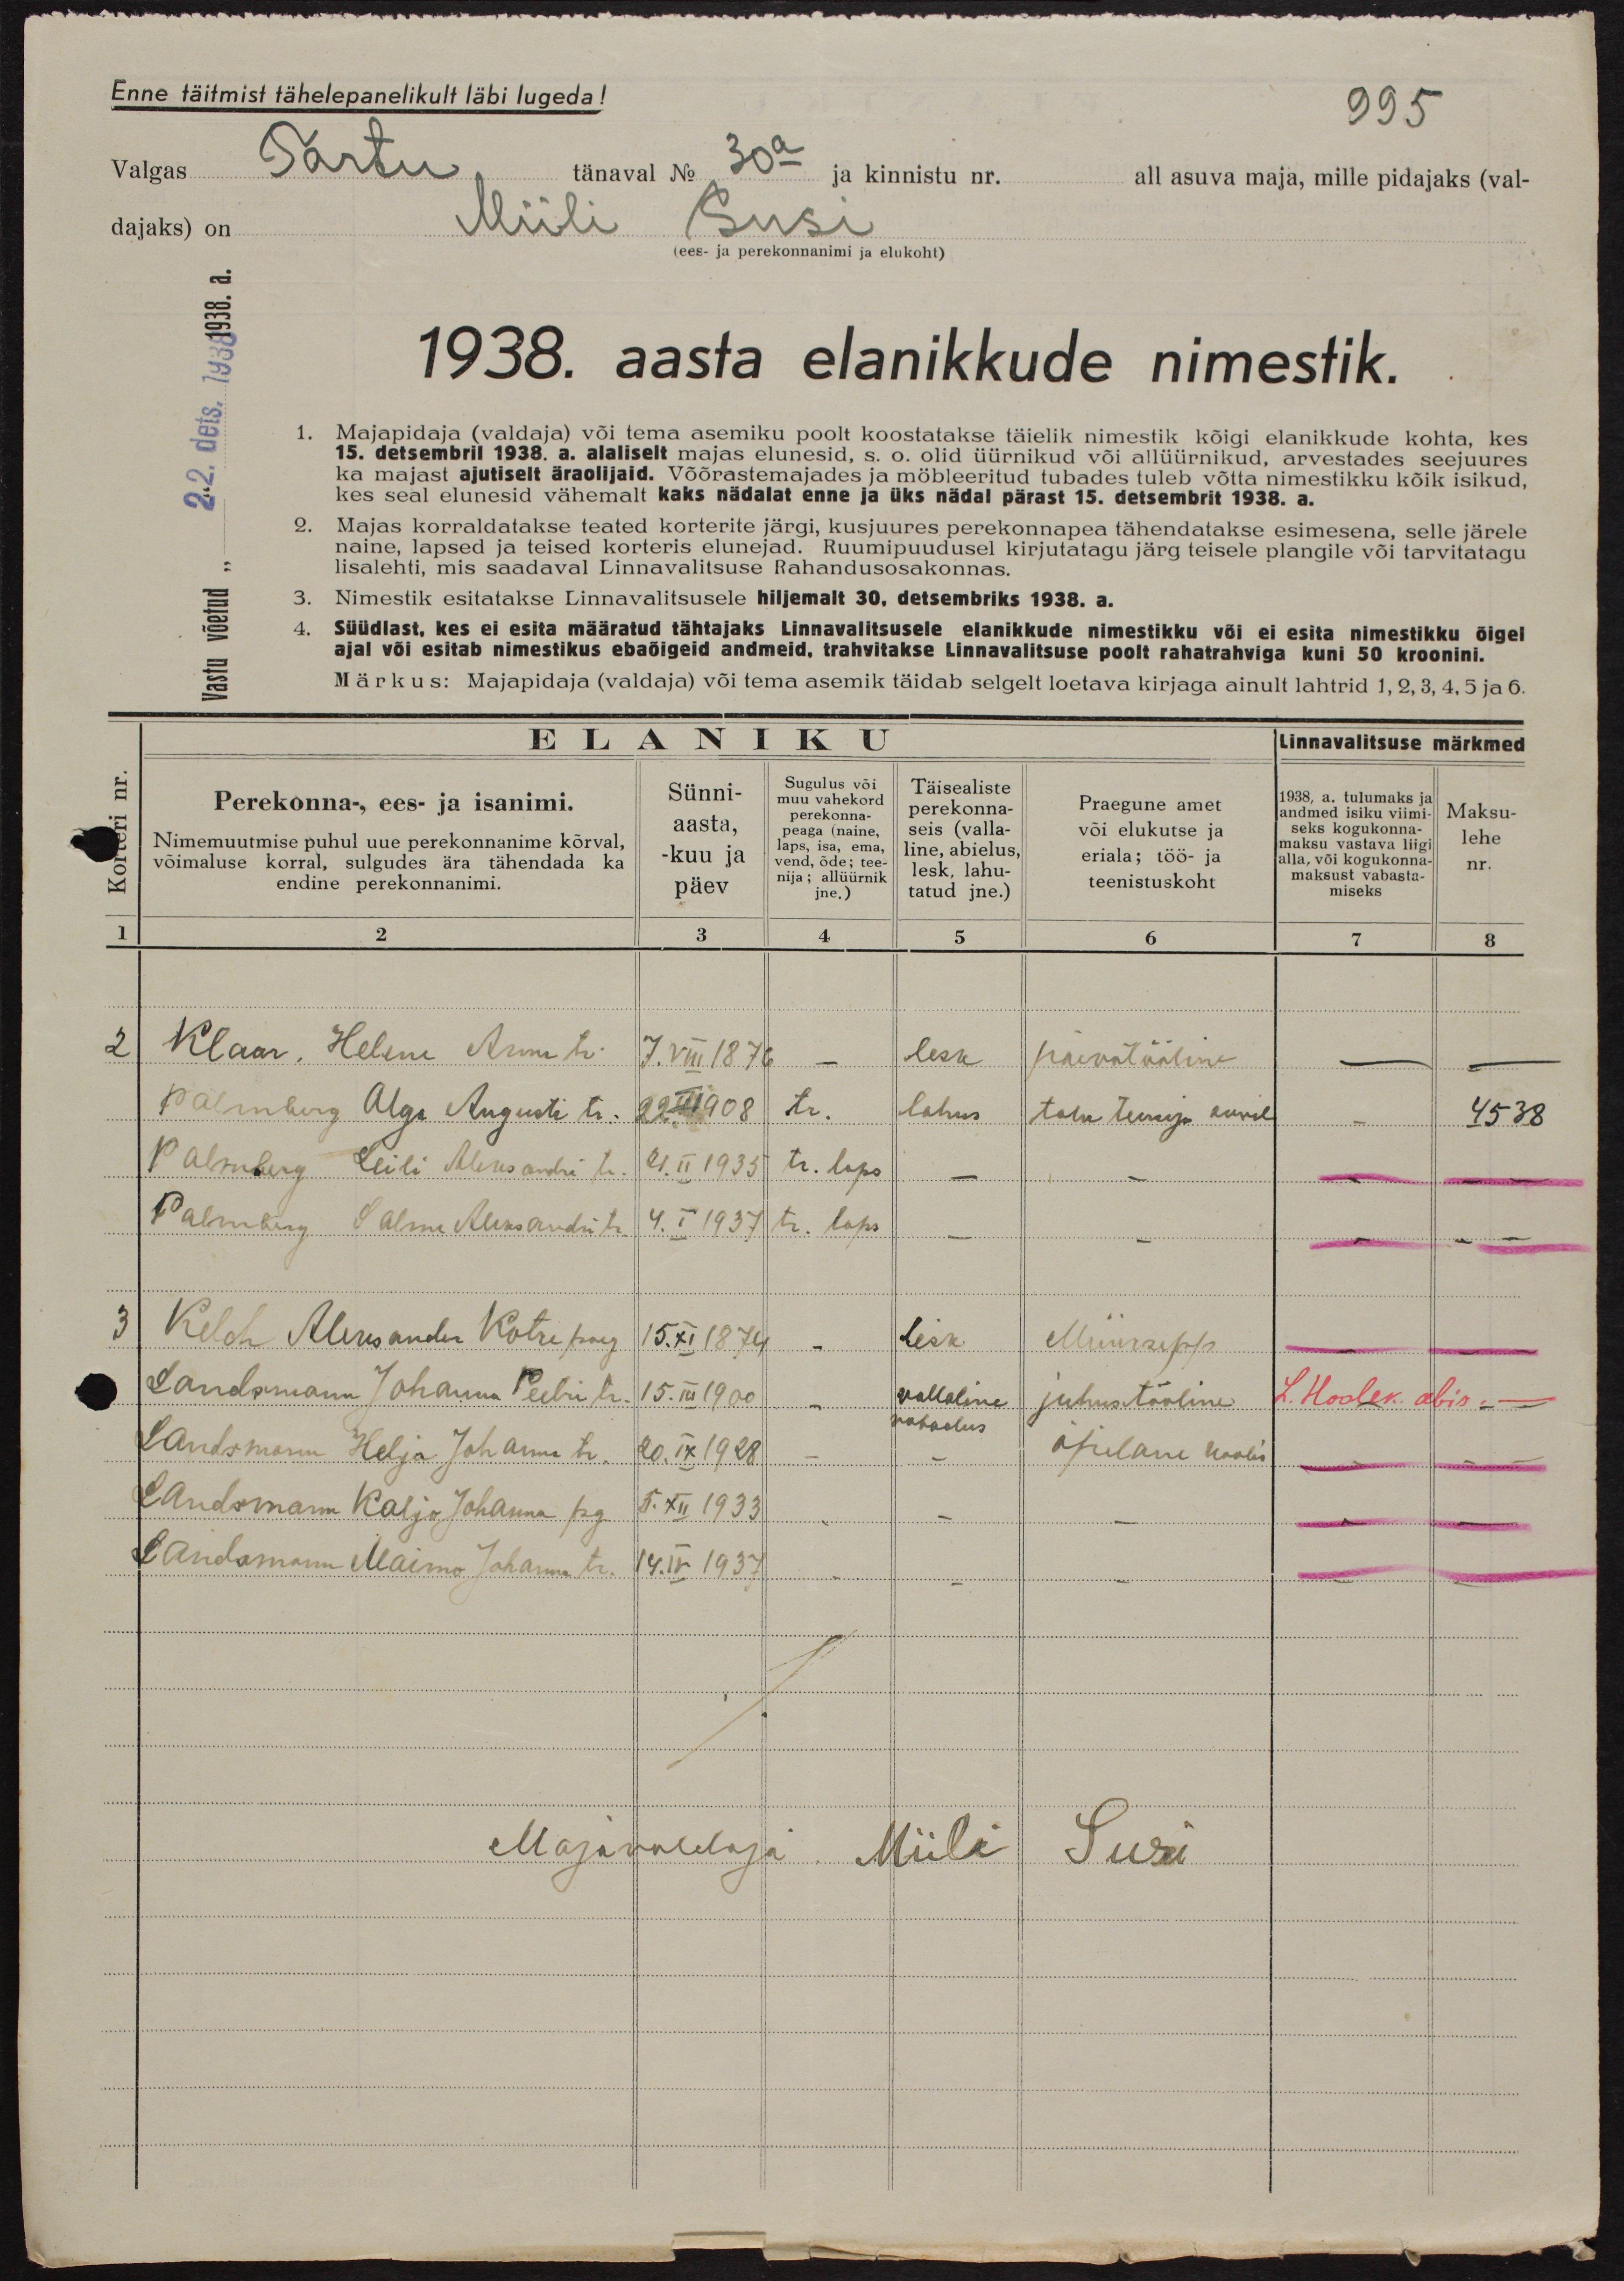 Enne täitmist tähelepanelikult läbi lugeda!
995
Valgas Tartu tänaval № 30a ja kinnistu nr. all asuva maja, mille pidajaks (val-
dajaks) on Miili Susi
(ees- ja perekonnanimi ja elukoht)
Vastu võetud „ 22. dets. 1938 1938. a.
1938. aasta elanikkude nimestik.
1. Majapidaja (valdaja) või tema asemiku poolt koostatakse täielik nimestik kõigi elanikkude kohta, kes
15. detsembril 1938. a. alaliselt majas elunesid, s. o. olid üürnikud või allüürnikud, arvestades seejuures
ka majast ajutiselt äraolijaid. Võõrastemajades ja möbleeritud tubades tuleb võtta nimestikku kõik isikud,
kes seal elunesid vähemalt kaks nädalat enne ja üks nädal pärast 15. detsembrit 1938. a.
2. Majas korraldatakse teated korterite järgi, kusjuures perekonnapea tähendatakse esimesena, selle järele
naine, lapsed ja teised korteris elunejad. Ruumipuudusel kirjutatagu järg teisele plangile või tarvitatagu
lisalehti, mis saadaval Linnavalitsuse Rahandusosakonnas.
3. Nimestik esitatakse Linnavalitsusele hiljemalt 30. detsembriks 1938. a.
4. Süüdlast, kes ei esita määratud tähtajaks Linnavalitsusele elanikkude nimestikku või ei esita nimestikku õigel
ajal või esitab nimestikus ebaõigeid andmeid, trahvitakse Linnavalitsuse poolt rahatrahviga kuni 50 kroonini.
Märkus: Majapidaja (valdaja) või tema asemik täidab selgelt loetava kirjaga ainult lahtrid 1, 2, 3, 4, 5 ja 6.
ELANIKU
Linnavalitsuse märkmed
Korteri nr.
Perekonna-, ees- ja isanimi.
Nimemuutmise puhul uue perekonnanime kõrval,
võimaluse korral, sulgudes ära tähendada ka
endine perekonnanimi.
Sünni-
aasta,
-kuu ja
päev
Sugulus või
muu vahekord
perekonna-
peaga (naine,
laps, isa, ema,
vend, õde; tee-
nija; allüürnik
jne.)
Täisealiste
perekonna-
seis (valla-
line, abielus,
lesk, lahu-
tatud jne.)
Praegune amet
või elukutse ja
eriala; töö- ja
teenistuskoht
1938, a. tulumaks ja
andmed isiku viimi-
seks kogukonna-
maksu vastava liigi
alla, või kogukonna-
maksust vabasta-
miseks
Maksu-
lehe
nr.
1 2 3 4 5 6 7 8
2 Klaar, Helene Annu tr. 7. VIII 1876 — lesk päevatööline — —
Palmberg Olga Augusti tr. 22. 1908 tr. lahus talu teenija - 4538
Palmberg Leili Aleksandri tr. 21. II 1935 tr. laps — - — —
Palmberg Salme Aleksandri tr. 4. I 1937 tr. laps — - — —
3 Kelch Aleksander Kotre poeg 15. XI 1874 - lesk Müürsepp — —
Landsmann Johanna Peetri tr. 15. III 1900 - vallaline juhustööline L. Hoolek. abis. —
vabaelus
Landsmann Helja Johanna tr. 20. IX 1928 - - õpilane koolis — —
Landsmann Kaljo Johanna pg 5. XII 1933 - - - — —
Landsmann Maimo Johanna tr. 14. IV 1937 - - - — —
Majavaldaja Miili Susi